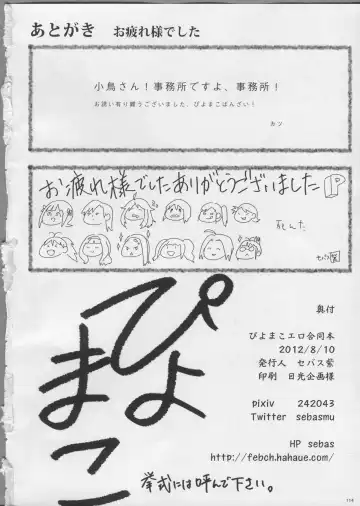 あとがき　お疲れ様でした
小鳥さん！事務所ですよ、事務所！
お誘い有り難うございました、ぴよまこばんざい！
カツ
お疲れ様でしたありがとうございました
死んだ
ぴよ
まこ
奥付
ぴよまこエロ合同本
2012/8/10
発行人　セバス紫
印刷　日光企画様
pixiv　242043
Twitter　sebasmu
HP　sebas
http://febch.hahaue.com/
挙式には呼んで下さい。
114